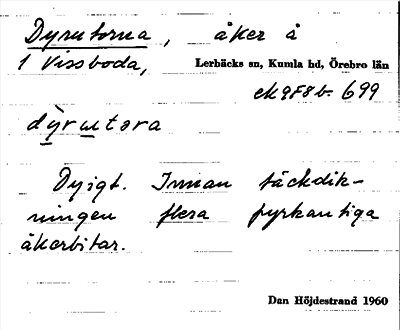 Dyrutorna, åker å
1 Vissboda, Lerbäcks sn, Kumla hd, Örebro län
ek 9F8b. 699
dy̠rɯ̠tɘra
Dyigt. Innan täckdik-
ningen flera fyrkantiga
åkerbitar.
Dan Höjdestrand 1960